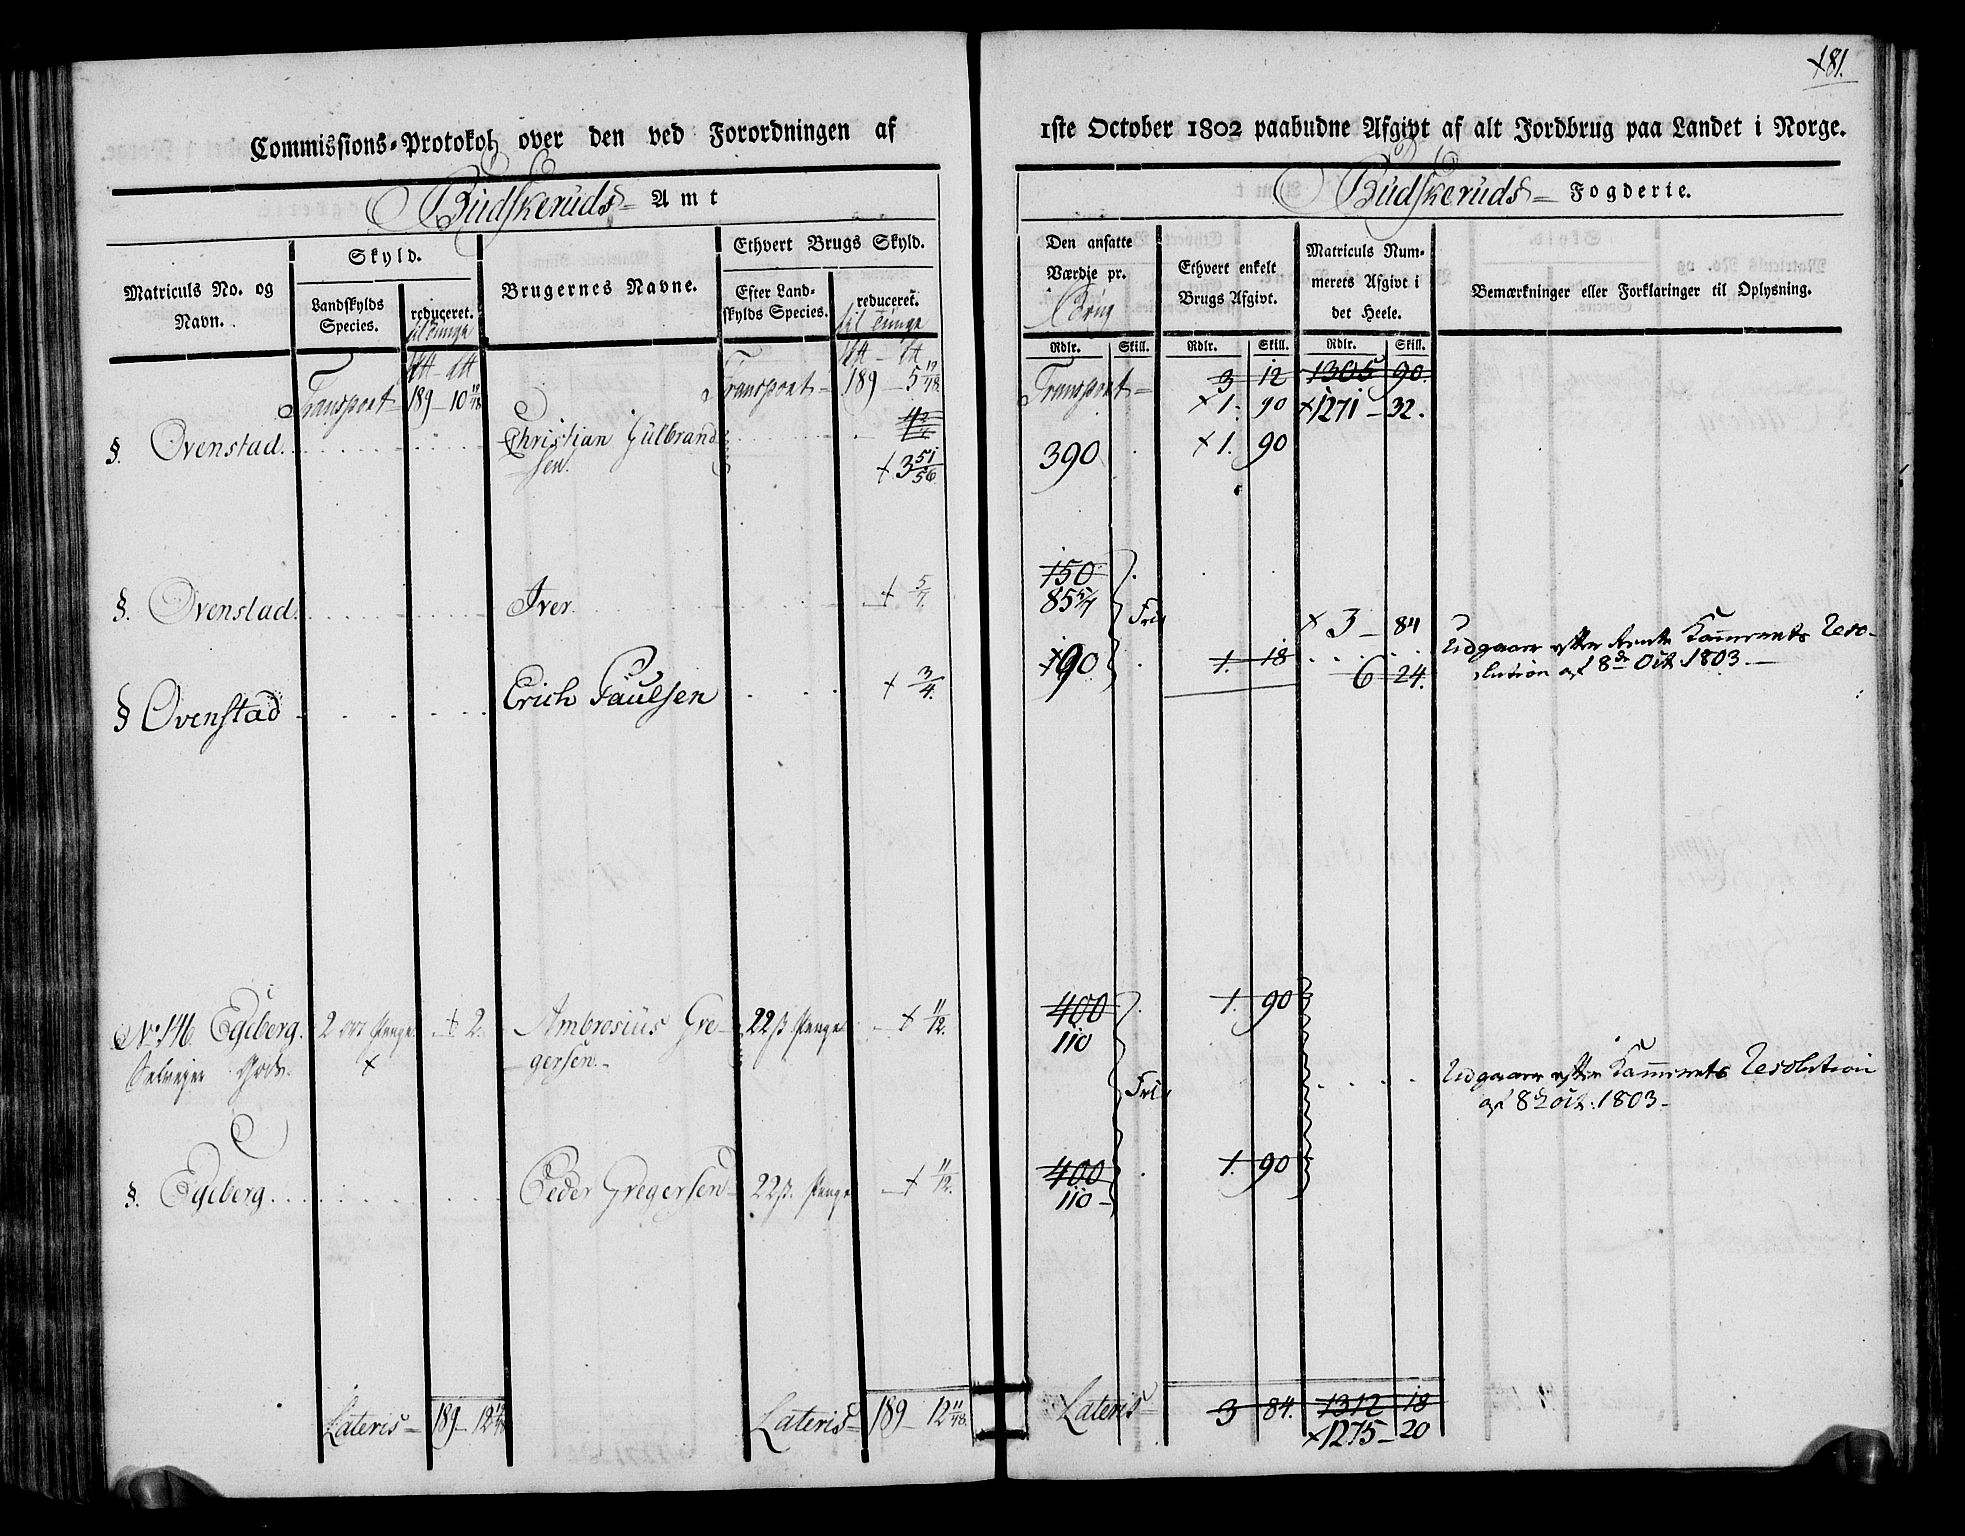 181.
Commissions-Protokol over den ved Forordningen af 1ste October 1802 paabudne Afgivt af alt Jordbrug paa Landet i Norge.
Budskeruds Amt
Budskeruds Fogderie.
Matriculs No. og Navn.
Skyld.
Landskylds Species.
reduceret.
til Tunge
Brugernes Navne.
Ethvert Brugs Skyld.
Efter Landskylds Species.
reduceret.
til Tunge
Den ansatte Værdie pr. Brug
Rdlr. Skill.
Ethvert enkelt Brugs Afgivt.
Rdlr. Skill.
Matriculs Nummerets Afgivt i det Heele.
Rdlr. Skill.
Bemærkninger eller Forklaringer til Oplysning.
Transport 189 - 10 Transport 189 - 5 Transport 3 12 1305 90
× 1. 90 × 1271 - 32.
§. Ovenstad. Christian Gulbrandsen. × 3 51/56 390 × 1. 90
§. Ovenstad. Iver. × 5/7 150 85 5/7 Frie × 3 - 84
Udgaaer efter Rente Kammerets Resolution af 8de Oct 1803.
§ Ovenstad Erich Paulsen × 3/4. 90 1. 18 6 24.
No. 146. Egeberg. 2 ort Penge × 2. Ambrosius Gregersen. 22 ß Penge × 11/12. 400 110 1. 90
Selveier Gods. ×
Frie
Udgaaer efter Kammerets Resolution af 8de Oct: 1803.
§. Egeberg. Peder Gregersen 22 ß. Penge × 11/12. 400 110 1. 90
Lateris 189 - 12 Lateris 189 - 12 Lateris 3 84. 1312 18
× 1275 - 20